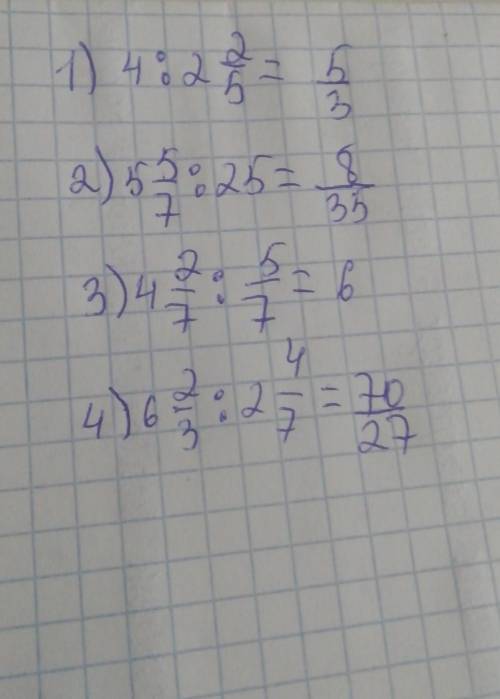 1) 4 : 2 2/5 = 5/3
2) 5 5/7 : 25 = 8/35
3) 4 2/7 : 5/7 = 6
4) 6 2/3 : 2 4/7 = 70/27